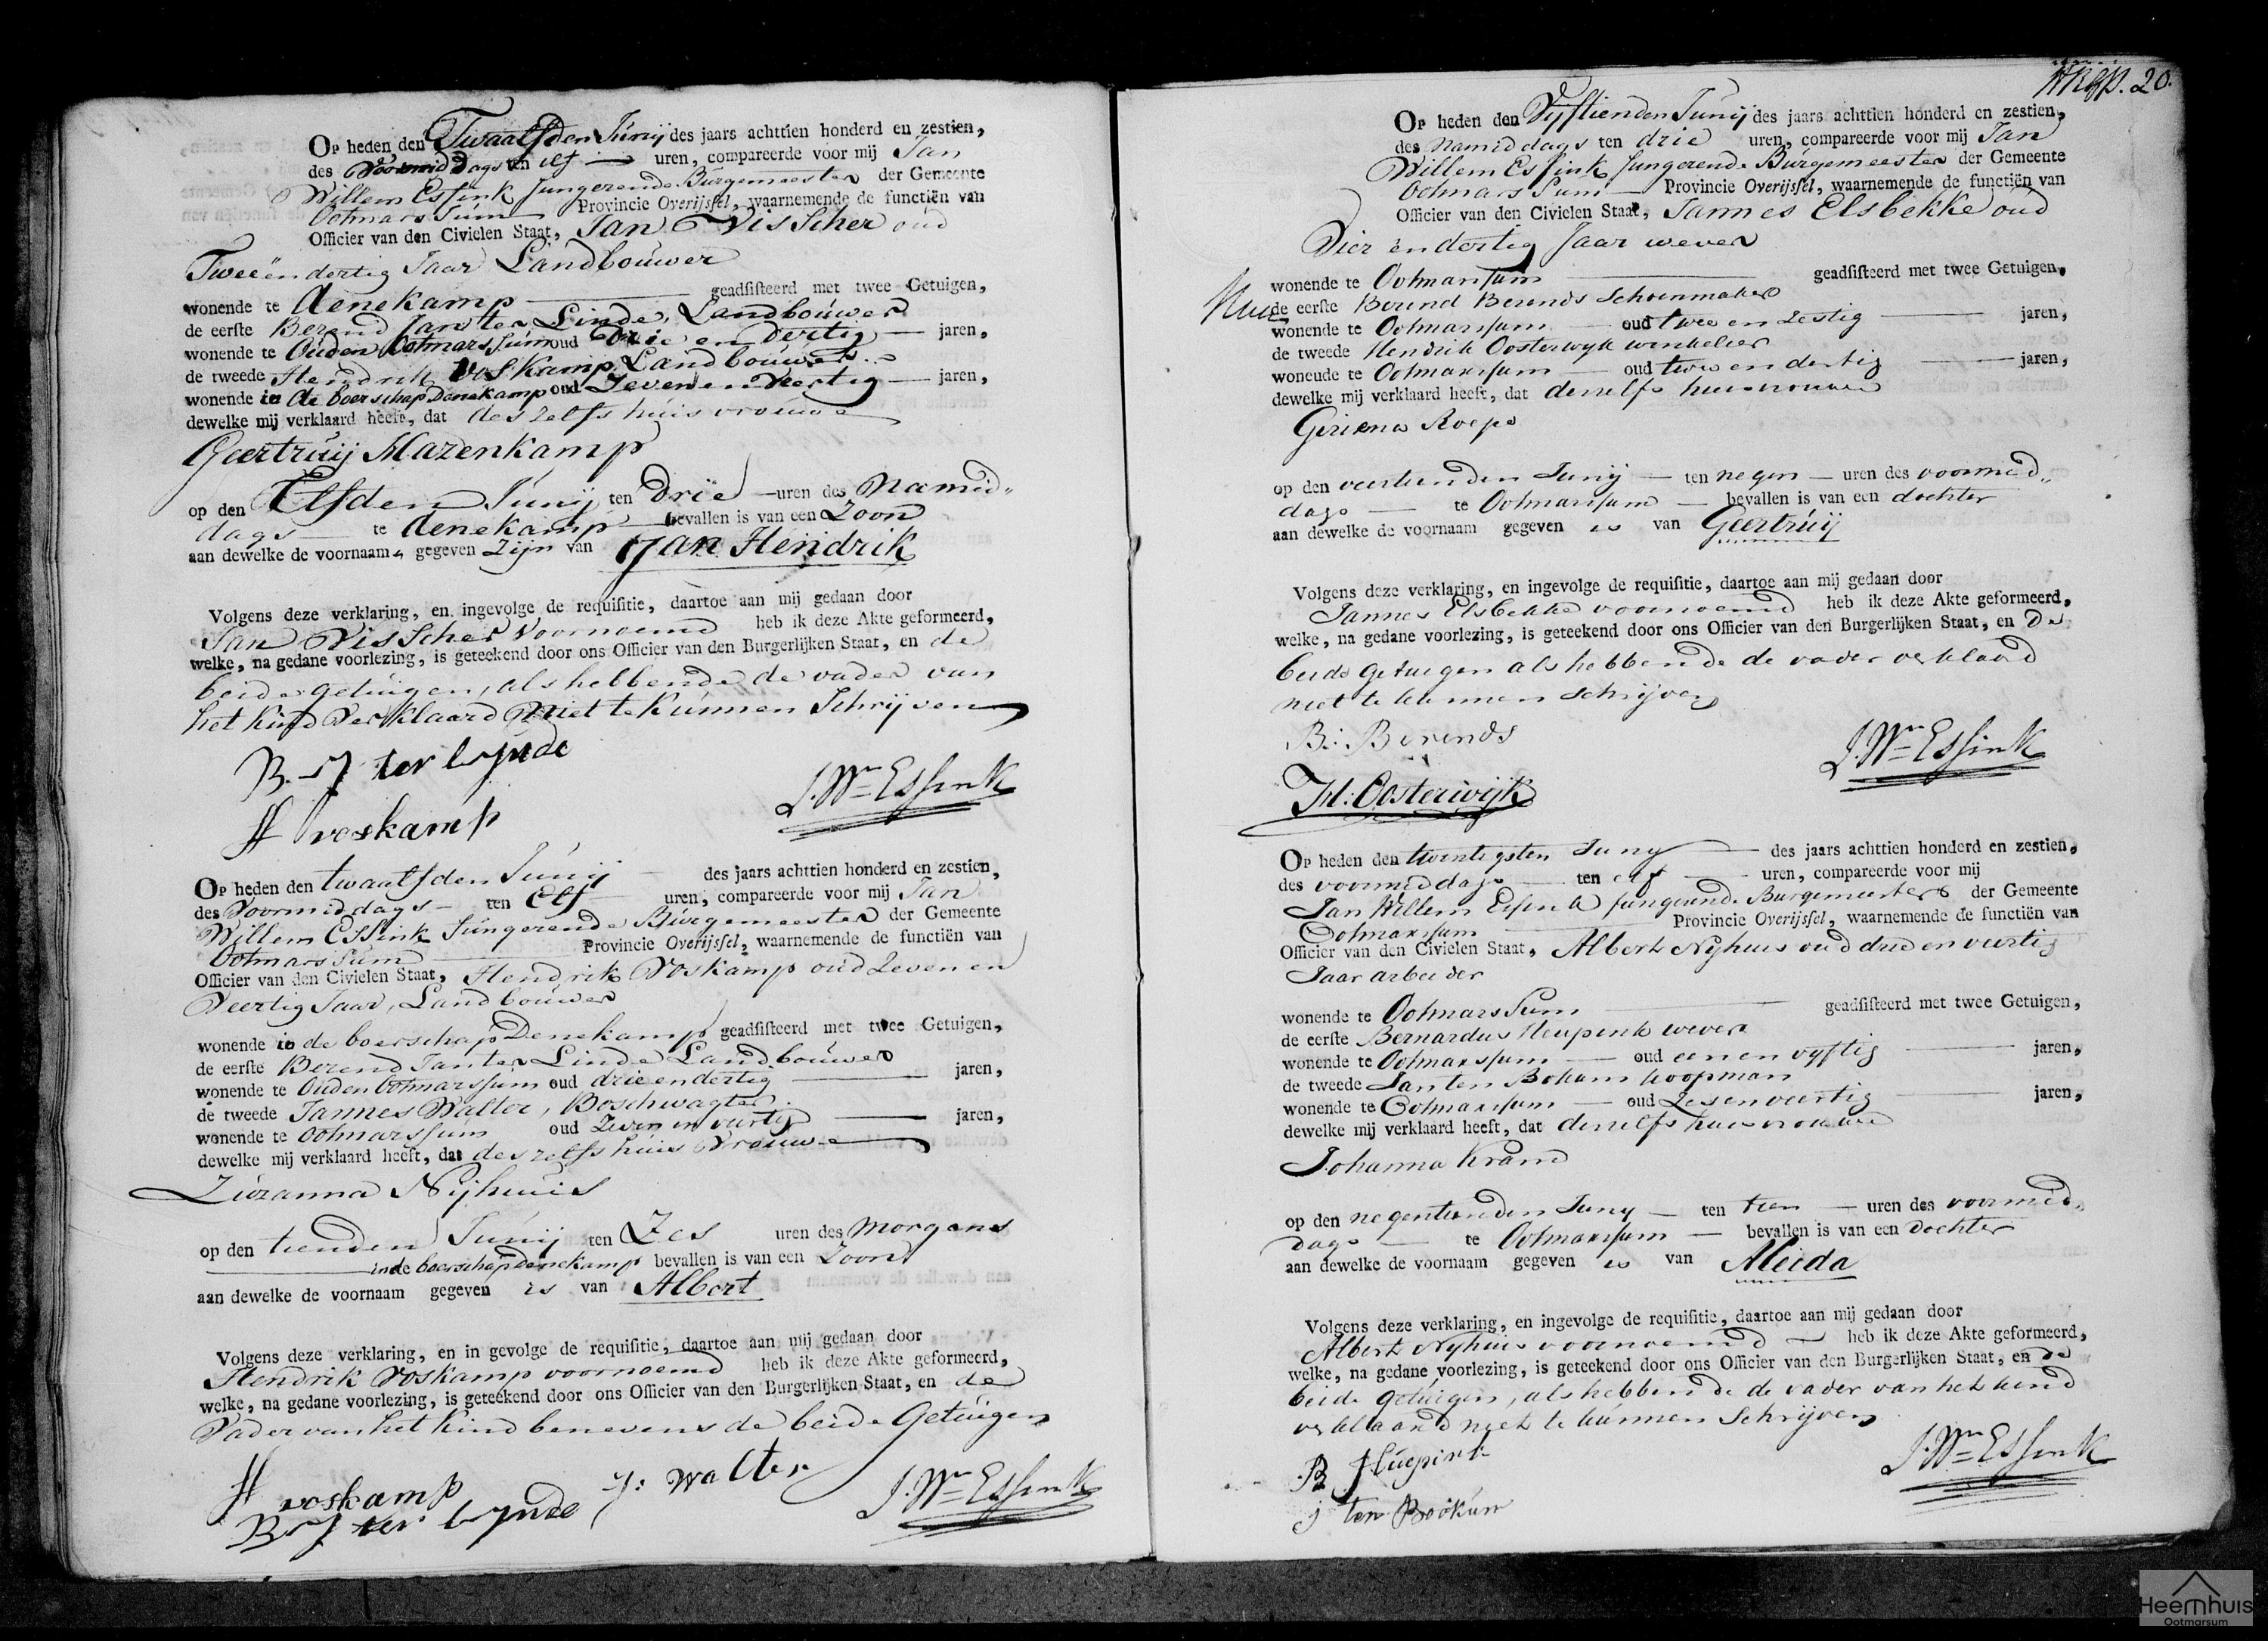 Op heden den Twaalfden Júnij des jaars achttien honderd en zestien,
des Voormiddags ten elf uren, compareerde voor mij Jan
Willem Essink fungerende Búrgemeester der Gemeente
Ootmarssum Provincie Overijssel, waarnemende de functiën van
Officier van den Civielen Staat, Jan Visscher oud
Tweeën dertig Jaar Landboúwer
wonende te denekamp geadsisteerd met twee Getuigen,
de eerste Berend Jan ter Linde, Landboúwer
wonende te Oúden Ootmarssúm oud drie en dertig jaren,
de tweede Hendrik Voskamp Landboúwer
wonende in de boerschap Denekamp oud Zeven en Veertig jaren,
dewelke mij verklaard heeft, dat deszelfs húisvroúwe
Geertruij Mazenkamp
op den Elfden Júnij ten drie uren des Namid„
dags te denekamp bevallen is van een Zoon
aan dewelke de voornaam gegeven zijn van Jan Hendrik
Volgens deze verklaring, en ingevolge de requisitie, daartoe aan mij gedaan door
Jan Visscher voornoemd heb ik deze Akte geformeerd,
welke, na gedane voorlezing, is geteekend door ons Officier van den Burgerlijken Staat, en de
beide getúigen, als hebbende de vader van
het kind verklaard niet te kúnnen Schrijven
B. J ter Lynde
J. Wm Essink
H voskamp
Op heden den twaalfden Júnij des jaars achttien honderd en zestien,
des Voormiddags ten Elf uren, compareerde voor mij Jan
Willem Essink fúngerende Búrgemeester der Gemeente
Ootmarssúm Provincie Overijssel, waarnemende de functiën van
Officier van den Civielen Staat, Hendrik Voskamp oud Zeven en
Veertig Jaar, Landboúwer
wonende in de boerschap Denekamp geadsisteerd met twee Getuigen,
de eerste Berend Jan ter Linde Landboúwer
wonende te Oúden Ootmarssúm oud drie en dertig jaren,
de tweede Jannes Walter, Boschwagter
wonende te Ootmarssúm oud Zeven en veertig jaren,
dewelke mij verklaard heeft, dat deszelfs húis Vrouwe
Zúzanna Nijhuis
op den tienden Júnij ten Zes uren des morgens
in de boerschap Denekamp bevallen is van een Zoon
aan dewelke de voornaam gegeven is van Albert
Volgens deze verklaring, en in gevolge de requisitie, daartoe aan mij gedaan door
Hendrik Voskamp voornoemd heb ik deze Akte geformeerd,
welke, na gedane voorlezing, is geteekend door ons Officier van den Burgerlijken Staat, en de
Vader van het Kind benevens de beide Getúigen
H voskamp
J: Walter
J. Wm Essink
B J ter Lynde
20.
Op heden den Vyftienden Junij des jaars achttien honderd en zestien,
des namiddags ten drie uren, compareerde voor mij Jan
Willem Essink fungerende Burgemeester der Gemeente
Ootmarssum Provincie Overijssel, waarnemende de functiën van
Officier van den Civielen Staat, Jannes Elsbekke oud
Vier en dertig Jaar wever
wonende te Ootmarssum geadsisteerd met twee Getuigen,
de eerste Berend Berends Schoenmaker
wonende te Ootmarssum oud twee en zestig jaren,
de tweede Hendrik Oosterwyk winkelier
wonende te Ootmarssum oud twee en dertig jaren,
dewelke mij verklaard heeft, dat denselfs huisvrouwe
Geriena Roepe
op den veertienden Junij ten negen uren des voormid„
dags te Ootmarssum bevallen is van een dochter
aan dewelke de voornaam gegeven is van Geertruij
Volgens deze verklaring, en ingevolge de requisitie, daartoe aan mij gedaan door
Jannes Elsbekke voornoemd heb ik deze Akte geformeerd,
welke, na gedane voorlezing, is geteekend door ons Officier van den Burgerlijken Staat, en de
beide getuigen als hebbende de vader verklaard
niet te kunnen schrijven
B: Berends
J. Wm Essink
H: Oosterwijk
Op heden den twintigsten Juny des jaars achttien honderd en zestien,
des voormiddags ten elf uren, compareerde voor mij
Jan Willem Essink fungerende Burgemeester der Gemeente
Ootmarssum Provincie Overijssel, waarnemende de functiën van
Officier van den Civielen Staat, Albert Nyhuis oud drie en veertig
Jaar arbeider
wonende te Ootmarssum geadsisteerd met twee Getuigen,
de eerste Bernardus Heupink wever
wonende te Ootmarssum oud een en vyftig jaren,
de tweede Jan ten Bokum koopman
wonende te Ootmarssum oud Zes en veertig jaren,
dewelke mij verklaard heeft, dat denselfs huisvrouwe
Johanna Krand
op den negentienden Juny ten tien uren des voormid„
dags te Ootmarssum bevallen is van een dochter
aan dewelke de voornaam gegeven is van Aleida
Volgens deze verklaring, en ingevolge de requisitie, daartoe aan mij gedaan door
Albert Nyhuis voornoemd heb ik deze Akte geformeerd,
welke, na gedane voorlezing, is geteekend door ons Officier van den Burgerlijken Staat, en de
beide getúigen, als hebbende de vader van het kind
verklaard niet te kúnnen Schrijven
B Húepink
J. Wm Essink
j ten Bookum
Heemhuis
Ootmarsum